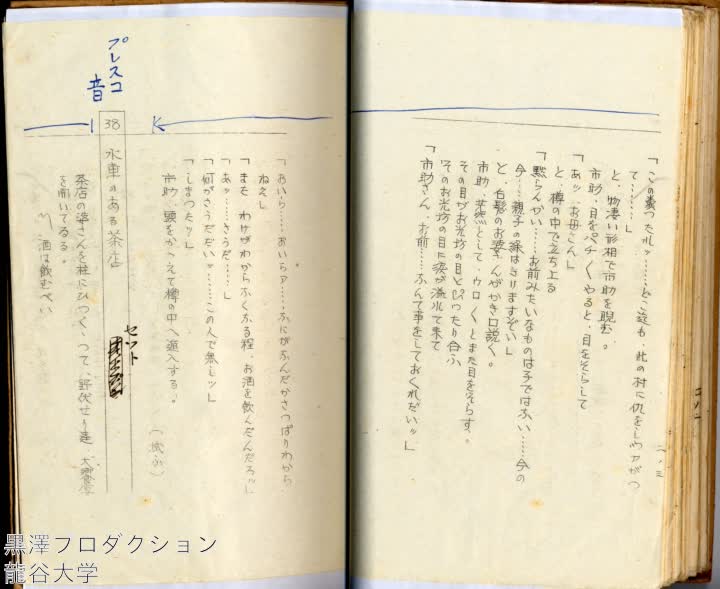 「この戯つたれッ……どこ迄も、此の村に仇をしウァがつ
て……」
と、物凄い形相で市助を睨む。
市助、目をパチ〱やると、目をそらして
「あッ、お母さん」
と、樽の中で立ち上る
「黙らんかい……お前みたいなものは子ではない……今の
今……親子の縁はきりますぞい」
と、白髪のお婆さんがかき口説く。
市助、茫然として、ウロ〱とまた目をそらす、
その目がお光坊の目とぴったり合ふ
そのお光坊の目に涙が溢れて来て
「市助さん、お前……なんて事をしておくれだいッ」
二ノ三
「おいら……おいらァ……なにがなんだかさっぱりわから
ねえ」
「また わけがわからなくなる程、お酒を飲んだんだろッ」
「あッ……さうだ……」
「何がさうだだいッ……この人で無しッ」
「しまつたッ」
市助、頭をかゝえて樽の中へ這入する。
38
水車のある茶店
セット
茶店の婆さんを柱にひつくゝつて、野伏せり達、大饗宴
を開いてゐる。
酒は飲むべい
プレスコ
音
黒澤プロダクション
龍谷大学